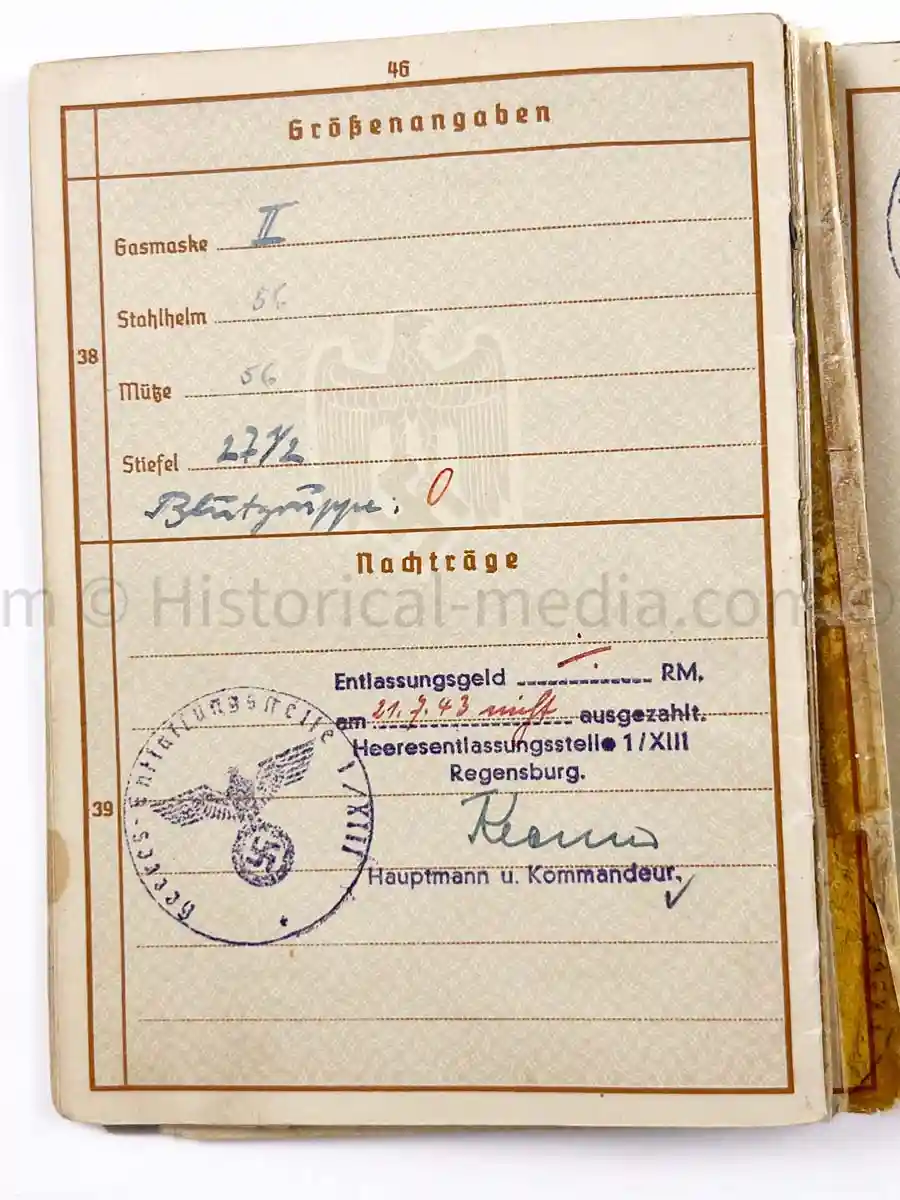 46
Größenangaben
Gasmaske II
Stahlhelm 56
38
Mütze 56
Stiefel 27 1/2
Blutgruppe: 0
Nachträge
m © Historical-media.com ©
Entlassungsgeld RM,
am 21.7.43 nicht ausgezahlt.
Heeresentlassungsstelle 1/XIII
Regensburg.
39
Hauptmann u. Kommandeur.
Heeres-Entlassungsstelle 1/XIII